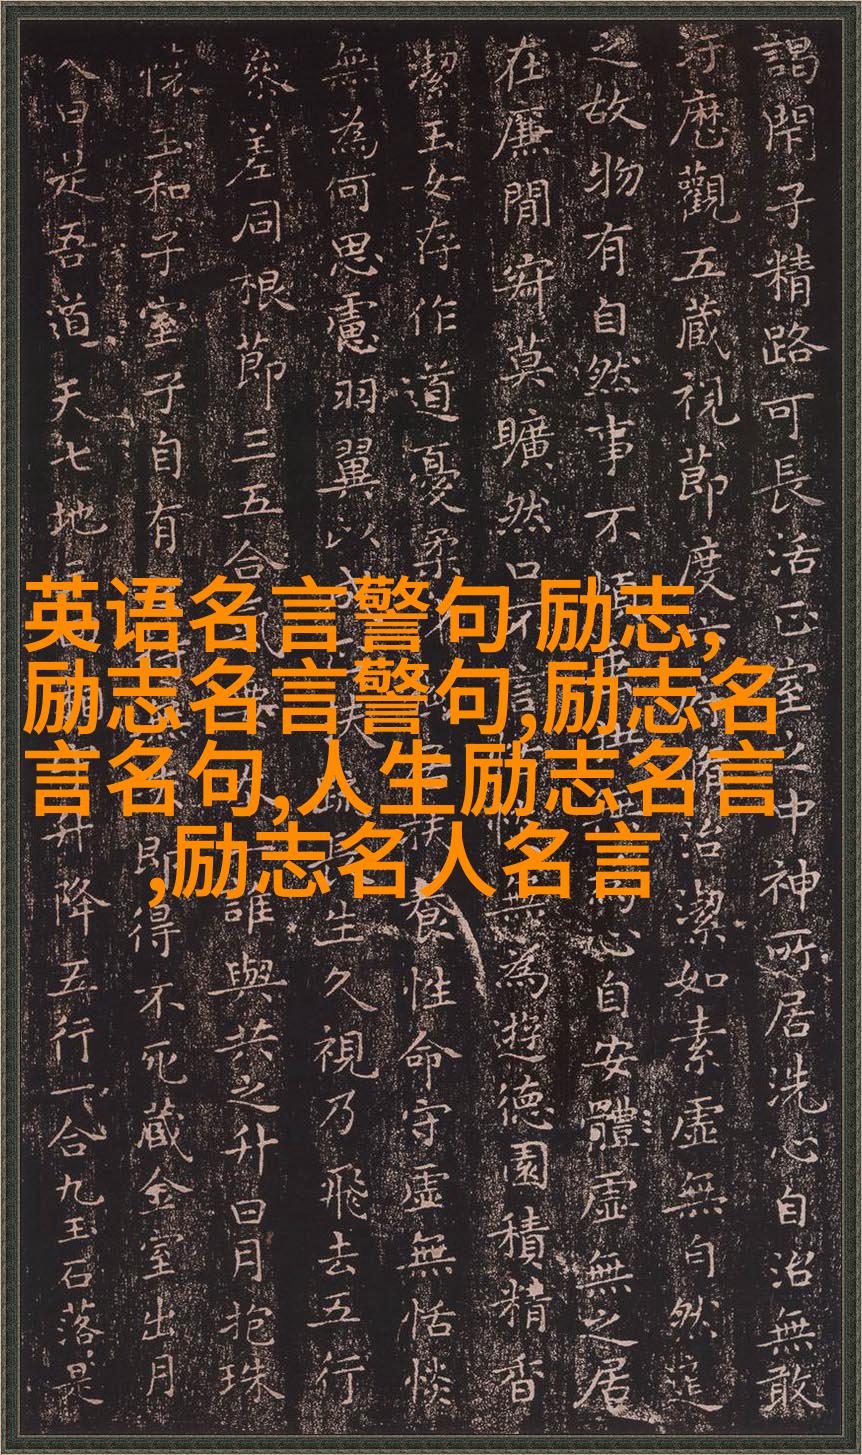 英语名言警句 励志,
励志名言警句,励志名
言名句,人生励志名言
,励志名人名言
謁閇子精路可長活正室之中神所居洗心自治無敢
汙歷觀五藏視節度脩治潔如素虛無自然道
之故物有自然事不心自安體虛無之居
在廉間寂莫曠然口不言無為遊德園積精香
潔玉女存作道憂柔養性命守虛無恬惔
無為何思慮羽翼以成扶疏生久視乃飛去五行
參差同根節三五合誰與共之升日月抱珠
懷玉和子室子自有即得不死藏金室出月
入日是吾道天七地升降五行一合九玉石落是